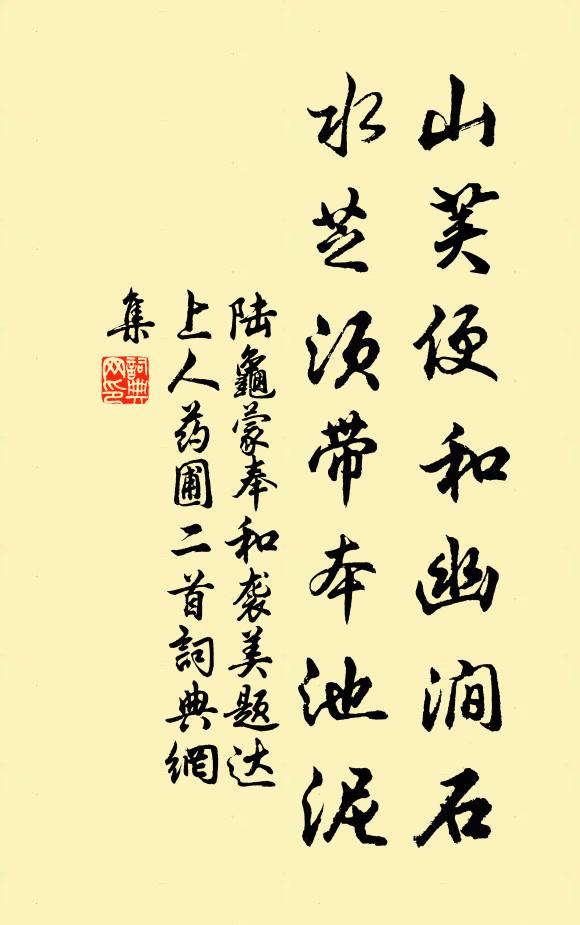 山荚便和幽涧石
水芝须带本池泥
陆龜蒙奉和袭美题达
上人药圃二首詞典網
集
詞典
网印